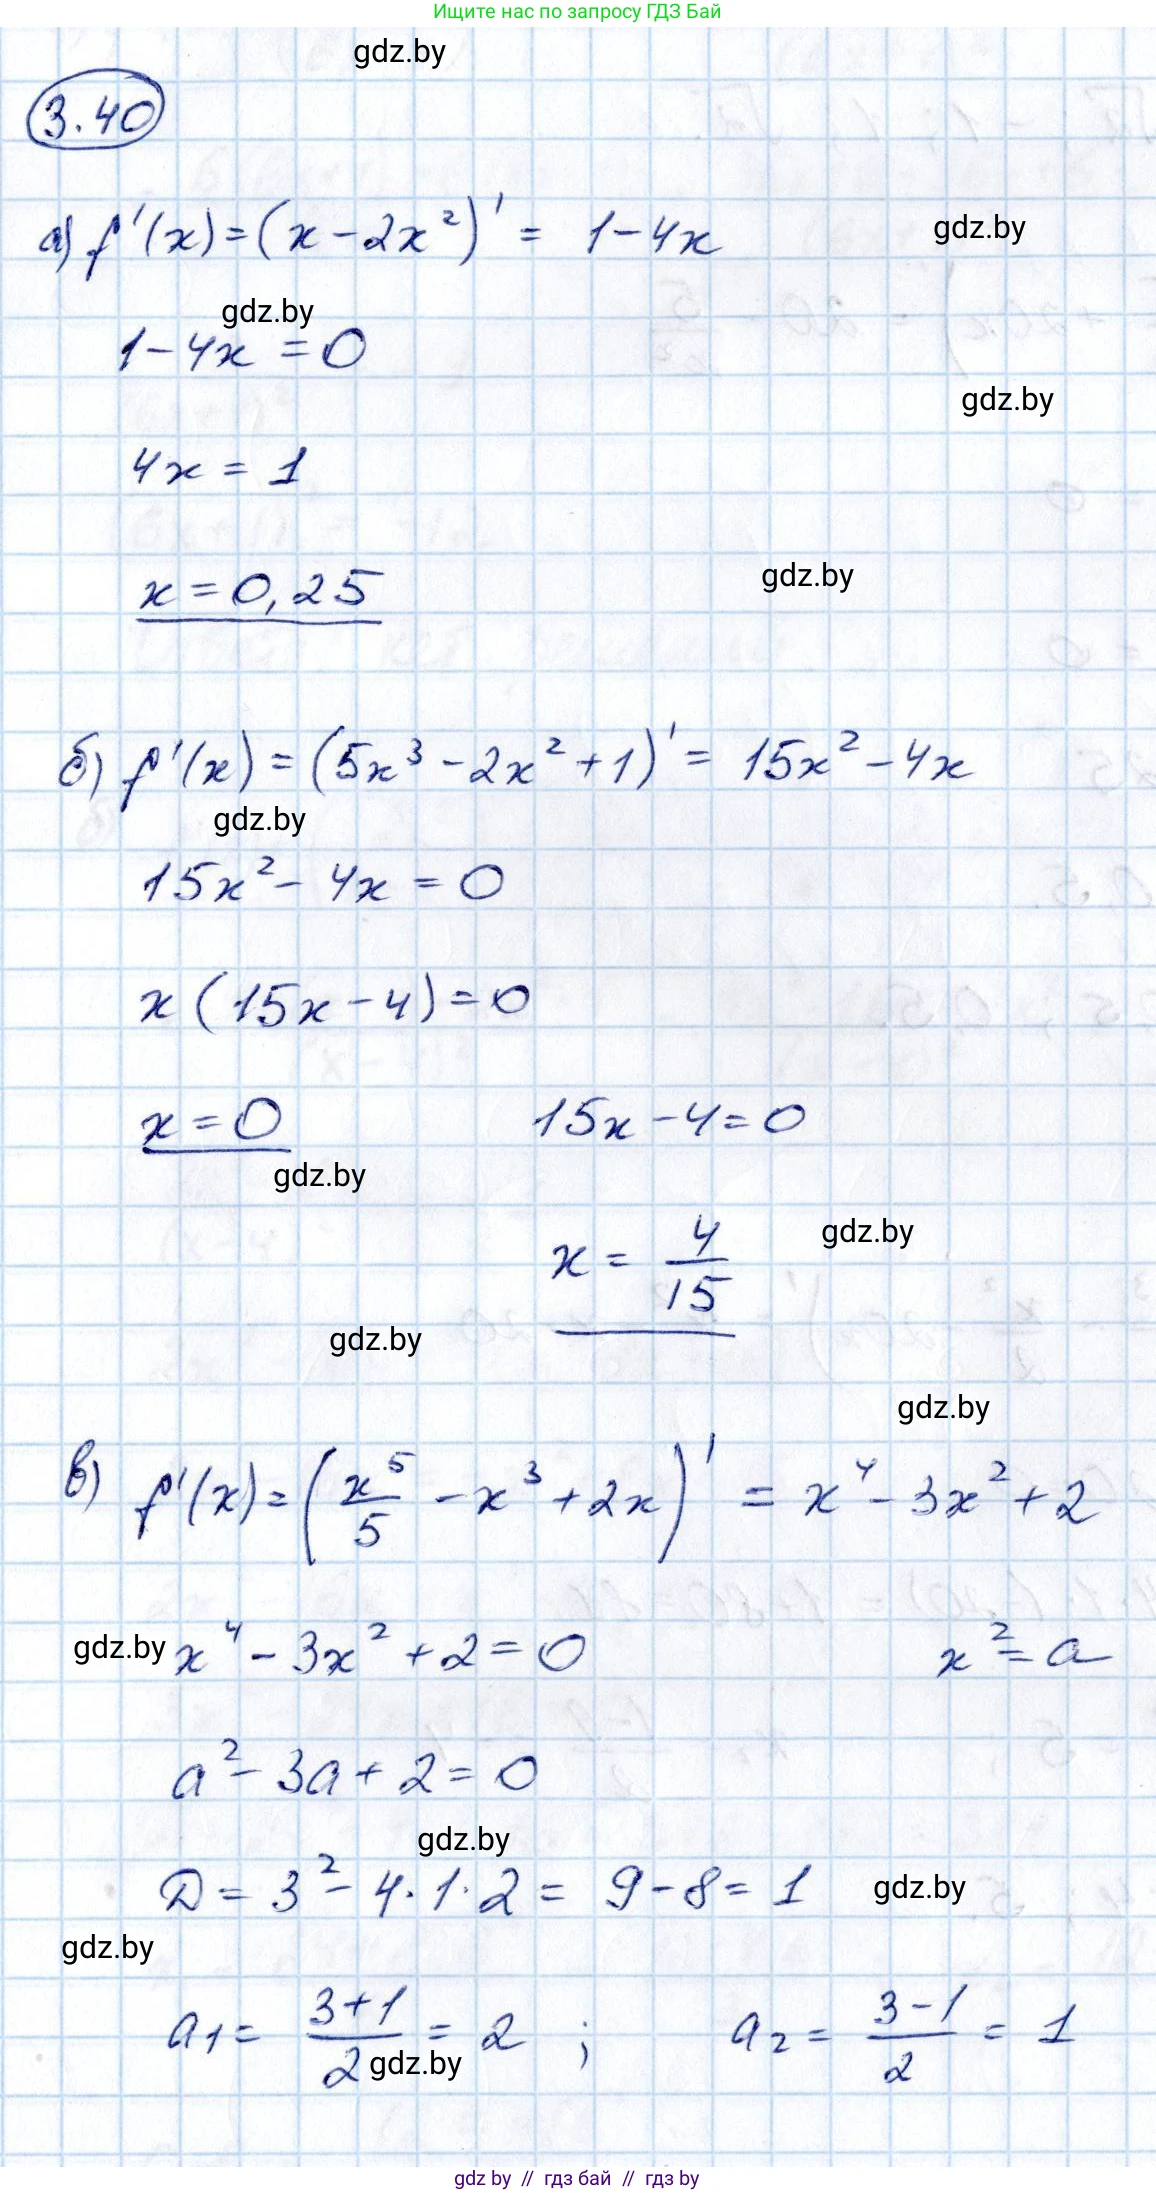 Ищите нас по запросу ГДЗ Бай
gdz.by
3.40
а) f'(x) = (x - 2x²)' = 1 - 4x
gdz.by
gdz.by
1 - 4x = 0
gdz.by
4x = 1
gdz.by
x = 0,25
б) f'(x) = (5x³ - 2x² + 1)' = 15x² - 4x
gdz.by
15x² - 4x = 0
x (15x - 4) = 0
x = 0 15x - 4 = 0
gdz.by
x = 4/15
gdz.by
gdz.by
gdz.by
в) f'(x) = (x⁵/5 - x³ + 2x)' = x⁴ - 3x² + 2
gdz.by
x⁴ - 3x² + 2 = 0 x² = a
a² - 3a + 2 = 0
gdz.by
D = 3² - 4·1·2 = 9 - 8 = 1
gdz.by
gdz.by
a₁ = (3+1)/2 = 2 ; a₂ = (3-1)/2 = 1
gdz.by
gdz by // гдз бай // гдз by